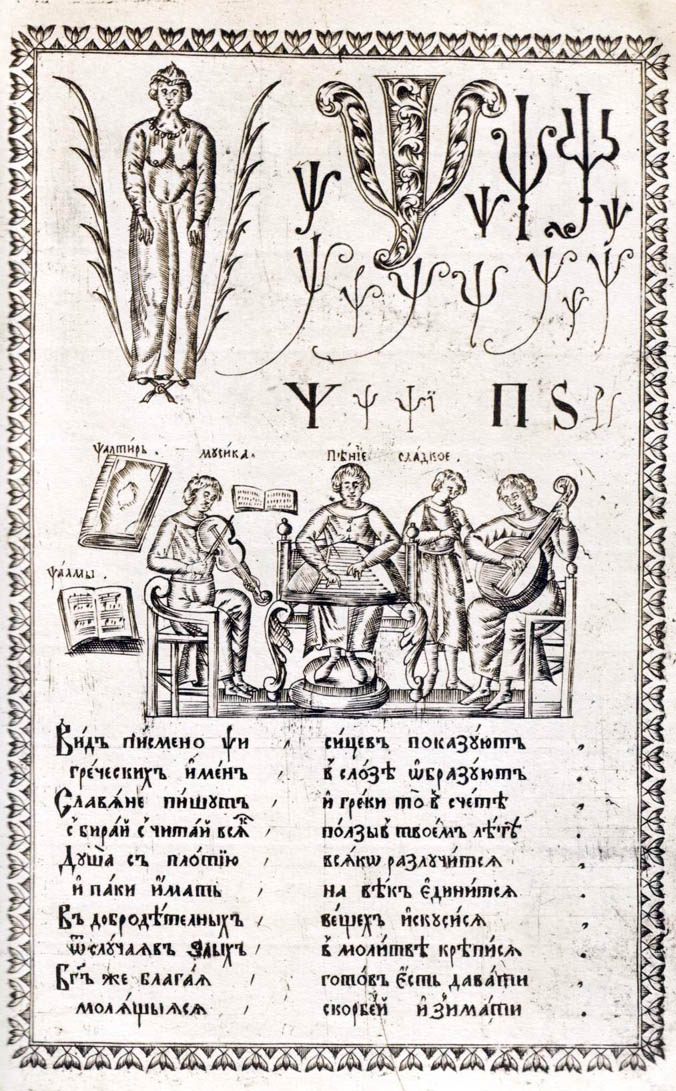 Ѱ Ѱ Ѱ Ѱ Ѱ Ѱ
ѱ ѱ ѱ ѱ ѱ ѱ ѱ
Ѱ ѱ ѱї П Ѕ
ѱалти́рь. мꙋси́ка. пѣ́нїе сла́дкое.
ѱалмы̀.
Ви́дъ пи́смено ѱи си́цевъ показꙋ́ютъ
гре́ческихъ и҆ме́нъ в̾ сло́зѣ ѡ҆бразꙋ́ютъ
Славѧ́не пи́шꙋтъ и҆ гре́ки то̀ в̾ сче́тѣ
с̾бира́й с̾чита́й в̾ твое́мъ
Дꙋша̀ съ пло́тїю всѧ́кѡ разлꙋчи́тсѧ
и҆ па́ки и҆́мать на вѣ́къ є҆дини́тсѧ
Въ добродѣ́телныхъ ве́щехъ и҆скꙋси́сѧ
ѿ слꙋ́чаѧвъ ѕлы́хъ в̾ моли́твѣ крѣпи́сѧ
Бг҃ъ же блага́ѧ гото́въ є҆́сть дава́ти
молѧ́щыѧсѧ скорбе́й и҆зима́ти